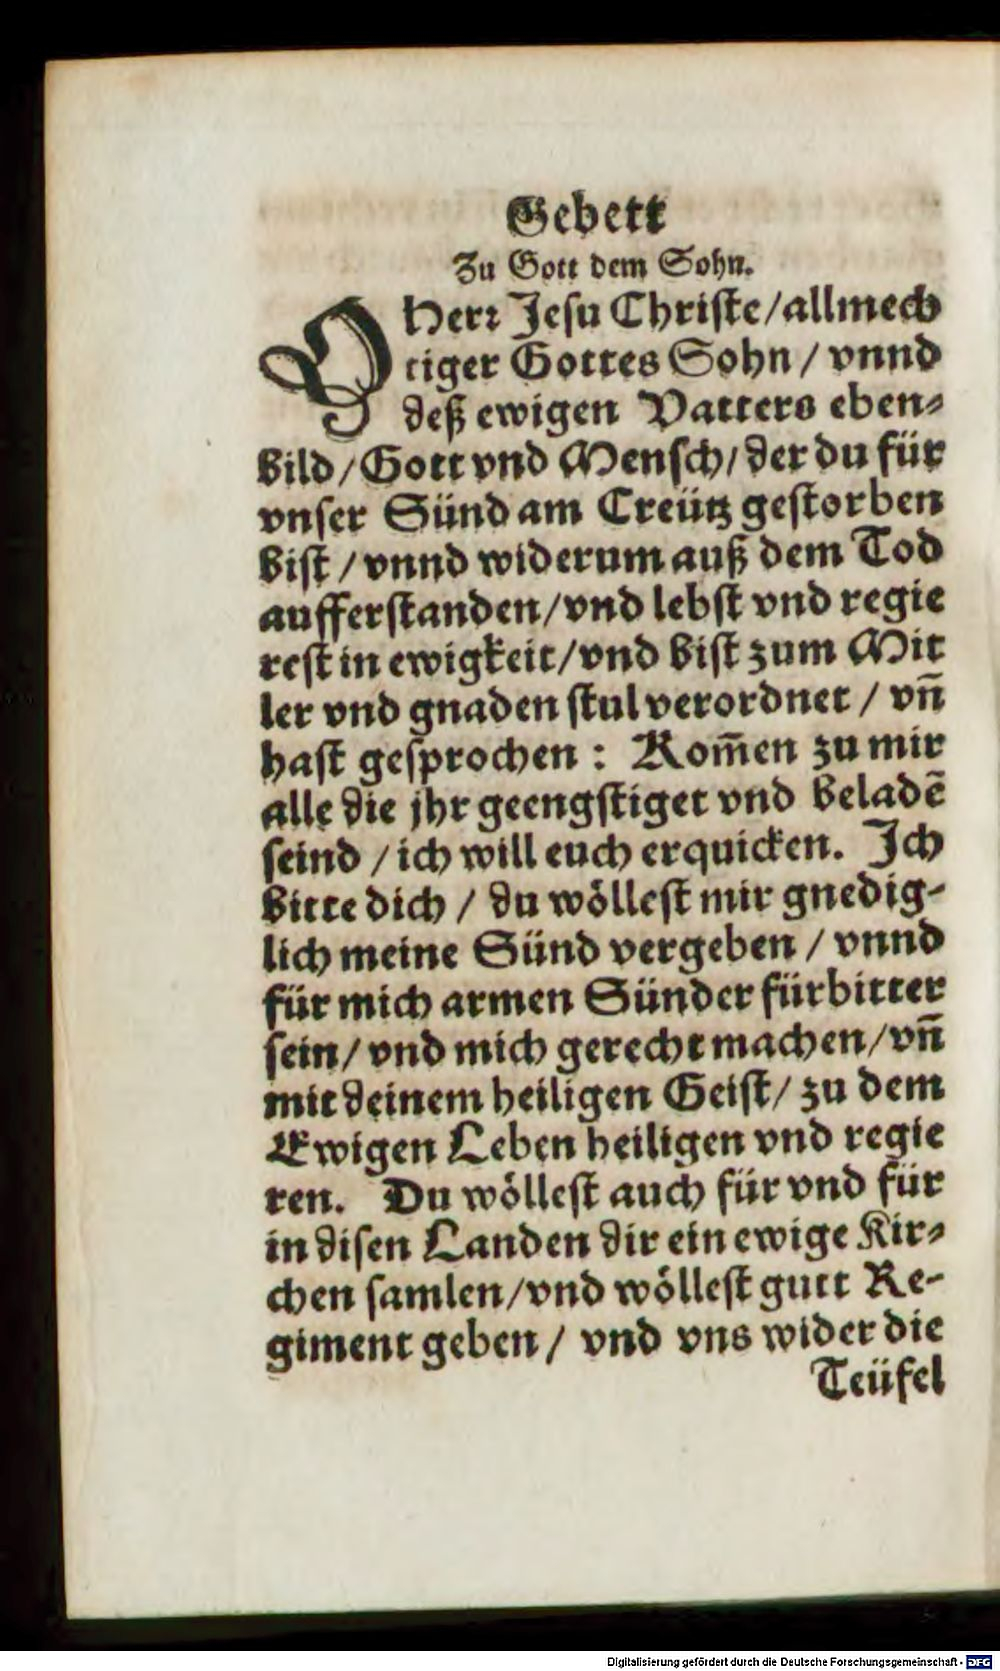 Gebett
Zu Gott dem Sohn.
O Herꝛ Jesu Christe/allmech
tiger Gottes Sohn / vnnd
deß ewigen Vatters eben-
bild/Gott vnd Mensch/der du für
vnser Sünd am Creütz gestorben
bist / vnnd widerum auß dem Tod
aufferstanden/vnd lebst vnd regie
rest in ewigkeit/vnd bist zum Mit
ler vnd gnaden stul verordnet / vn̄
hast gesprochen : Kom̄en zu mir
alle die jhr geengstiget vnd beladē
seind / ich will euch erquicken. Ich
bitte dich / du wöllest mir gnedig-
lich meine Sünd vergeben / vnnd
für mich armen Sünder fürbitter
sein/ vnd mich gerecht machen/vn̄
mit deinem heiligen Geist/ zu dem
Ewigen Leben heiligen vnd regie
ren. Du wöllest auch für vnd für
in disen Landen dir ein ewige Kir-
chen samlen/vnd wöllest gutt Re-
giment geben / vnd vns wider die
Teüfel
Digitalisierung gefördert durch die Deutsche Forschungsgemeinschaft - DFG